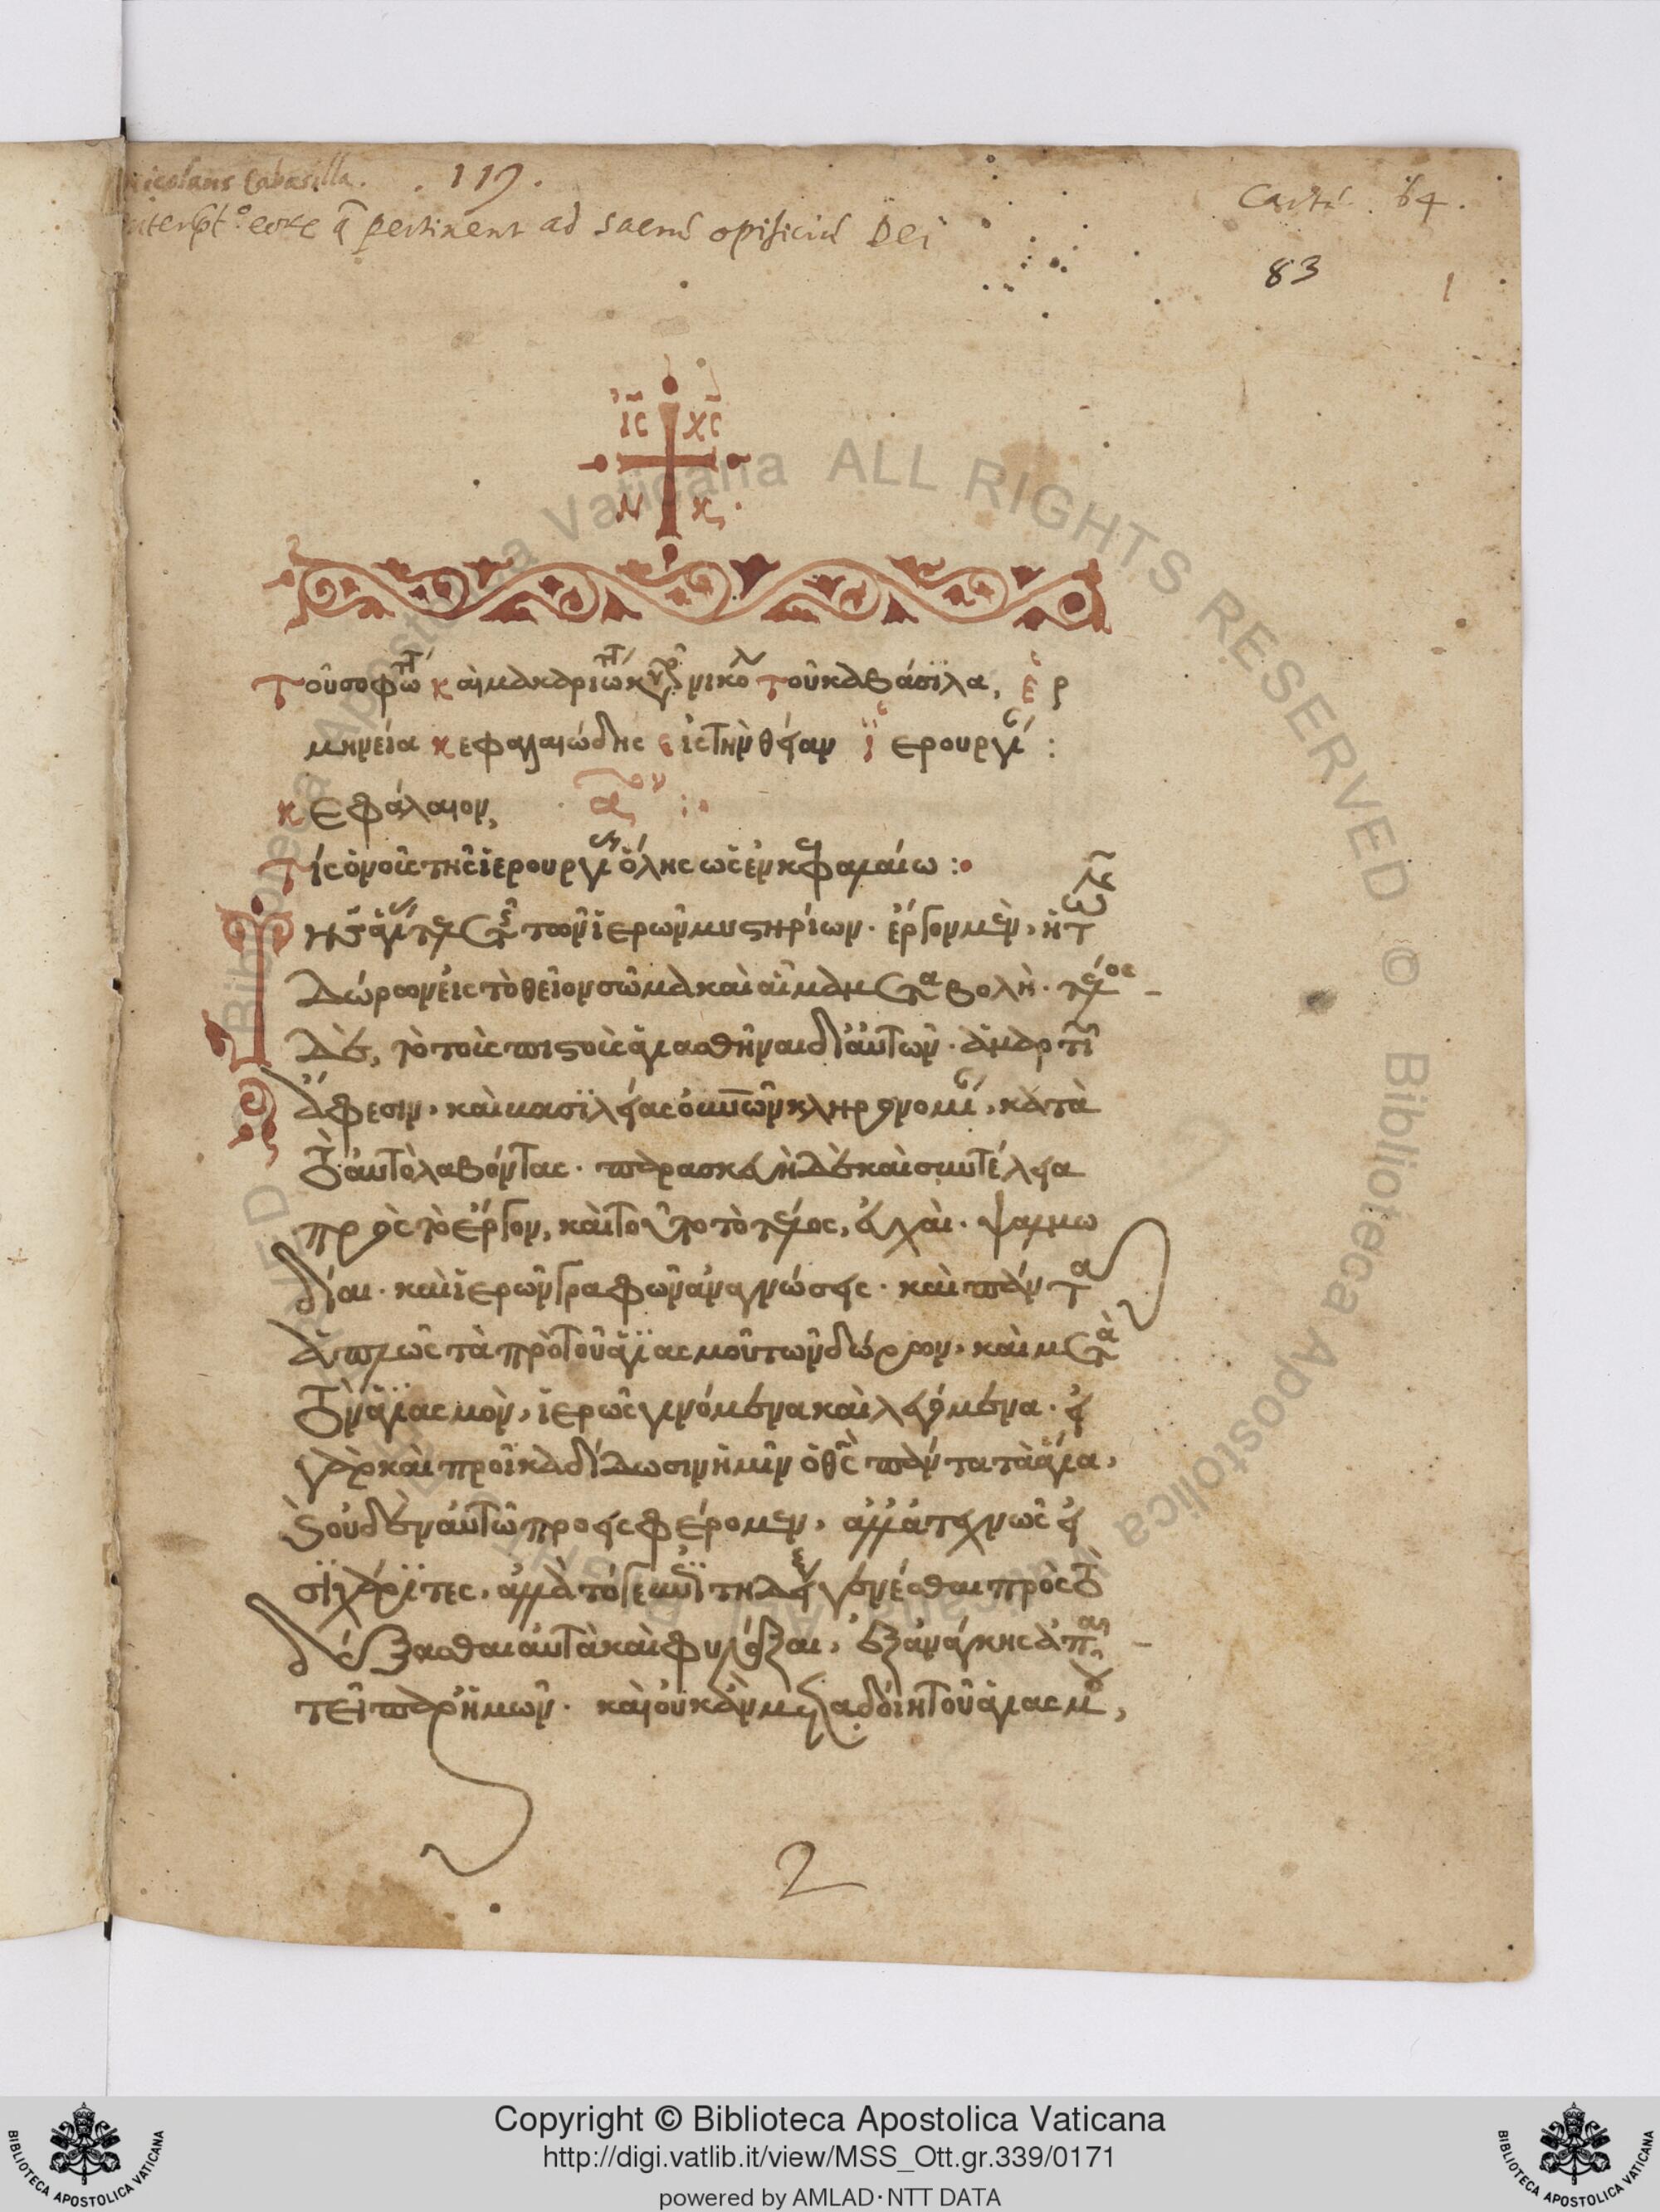 Nicolaus Cabasilla. . 119.
Cartè. 64.
pertinent ad sacrũ opificiũ Dei
83
1
ΙΣ ΧΣ
Ν Κ
Τοῦ σοφωτ(ά) καὶ μακαριωτ(ά) κυρ νικο τοῦ καβάσιλα, ἑρ
μηνεία κεφαλαιώδης εἰς τὴν θείαν ἱερουργί :
κεφάλαιον, α ον :
Τίς ὁ νοῦς τῆς ἱερουργί ὅλης ὡς ἐν κεφαλαίω :
τῶν ἱερῶν μυστηρίων. ἔργον μὲν, ἡ τῶν
δώρων εἰς τὸ θεῖον σῶμα καὶ αἷμα μεταβολὴ. τέλος
δὲ, τὸ τοὺς πιστοὺς ἁγιασθῆναι δι' αὐτῶν. ἁμαρτι
ἄφεσιν, καὶ βασιλείας οὐνῶν κληρονομί, κατὰ
τὸ αὐτὸ λαβόντας. παρασκευὴ δὲ καὶ συντέλεια
πρὸς τὸ ἔργον, καὶ τοῦτο τὸ τέλος, εὐχαὶ. ψαλμω
δίαι. καὶ ἱερῶν γραφῶν ἀναγνώσεις. καὶ πάντα
ἁπλῶς τὰ πρὸ τοῦ ἁγιασμοῦ τῶν δώρων, καὶ μετὰ
τὸν ἁγιασμὸν, ἱερῶς γινόμενα καὶ λεγόμενα. εἰ
γὰρ καὶ προῖκα δίδωσιν ἡμῖν ὁ θς πάντα τὰ ἅγια,
καὶ οὐδὲν αὐτῶ προεισφέρομεν, ἀλλ' ἀτεχνῶς εἰ
σὶ χάριτες, ἀλλὰ τό γε ἐπιτηδεί γενέσθαι πρὸς τὸ
δέξασθαι αὐτὰ καὶ φυλάξαι, ἐξ ἀνάγκης ἀπαι
τεῖ παρ' ἡμῶν. καὶ οὐκ ἂν μεταδοίη τοῦ ἁγιασμοῦ,
2
Copyright © Biblioteca Apostolica Vaticana
http://digi.vatlib.it/view/MSS_Ott.gr.339/0171
powered by AMLAD·NTT DATA
BIBLIOTECA APOSTOLICA VATICANA
BIBLIOTECA APOSTOLICA VATICANA